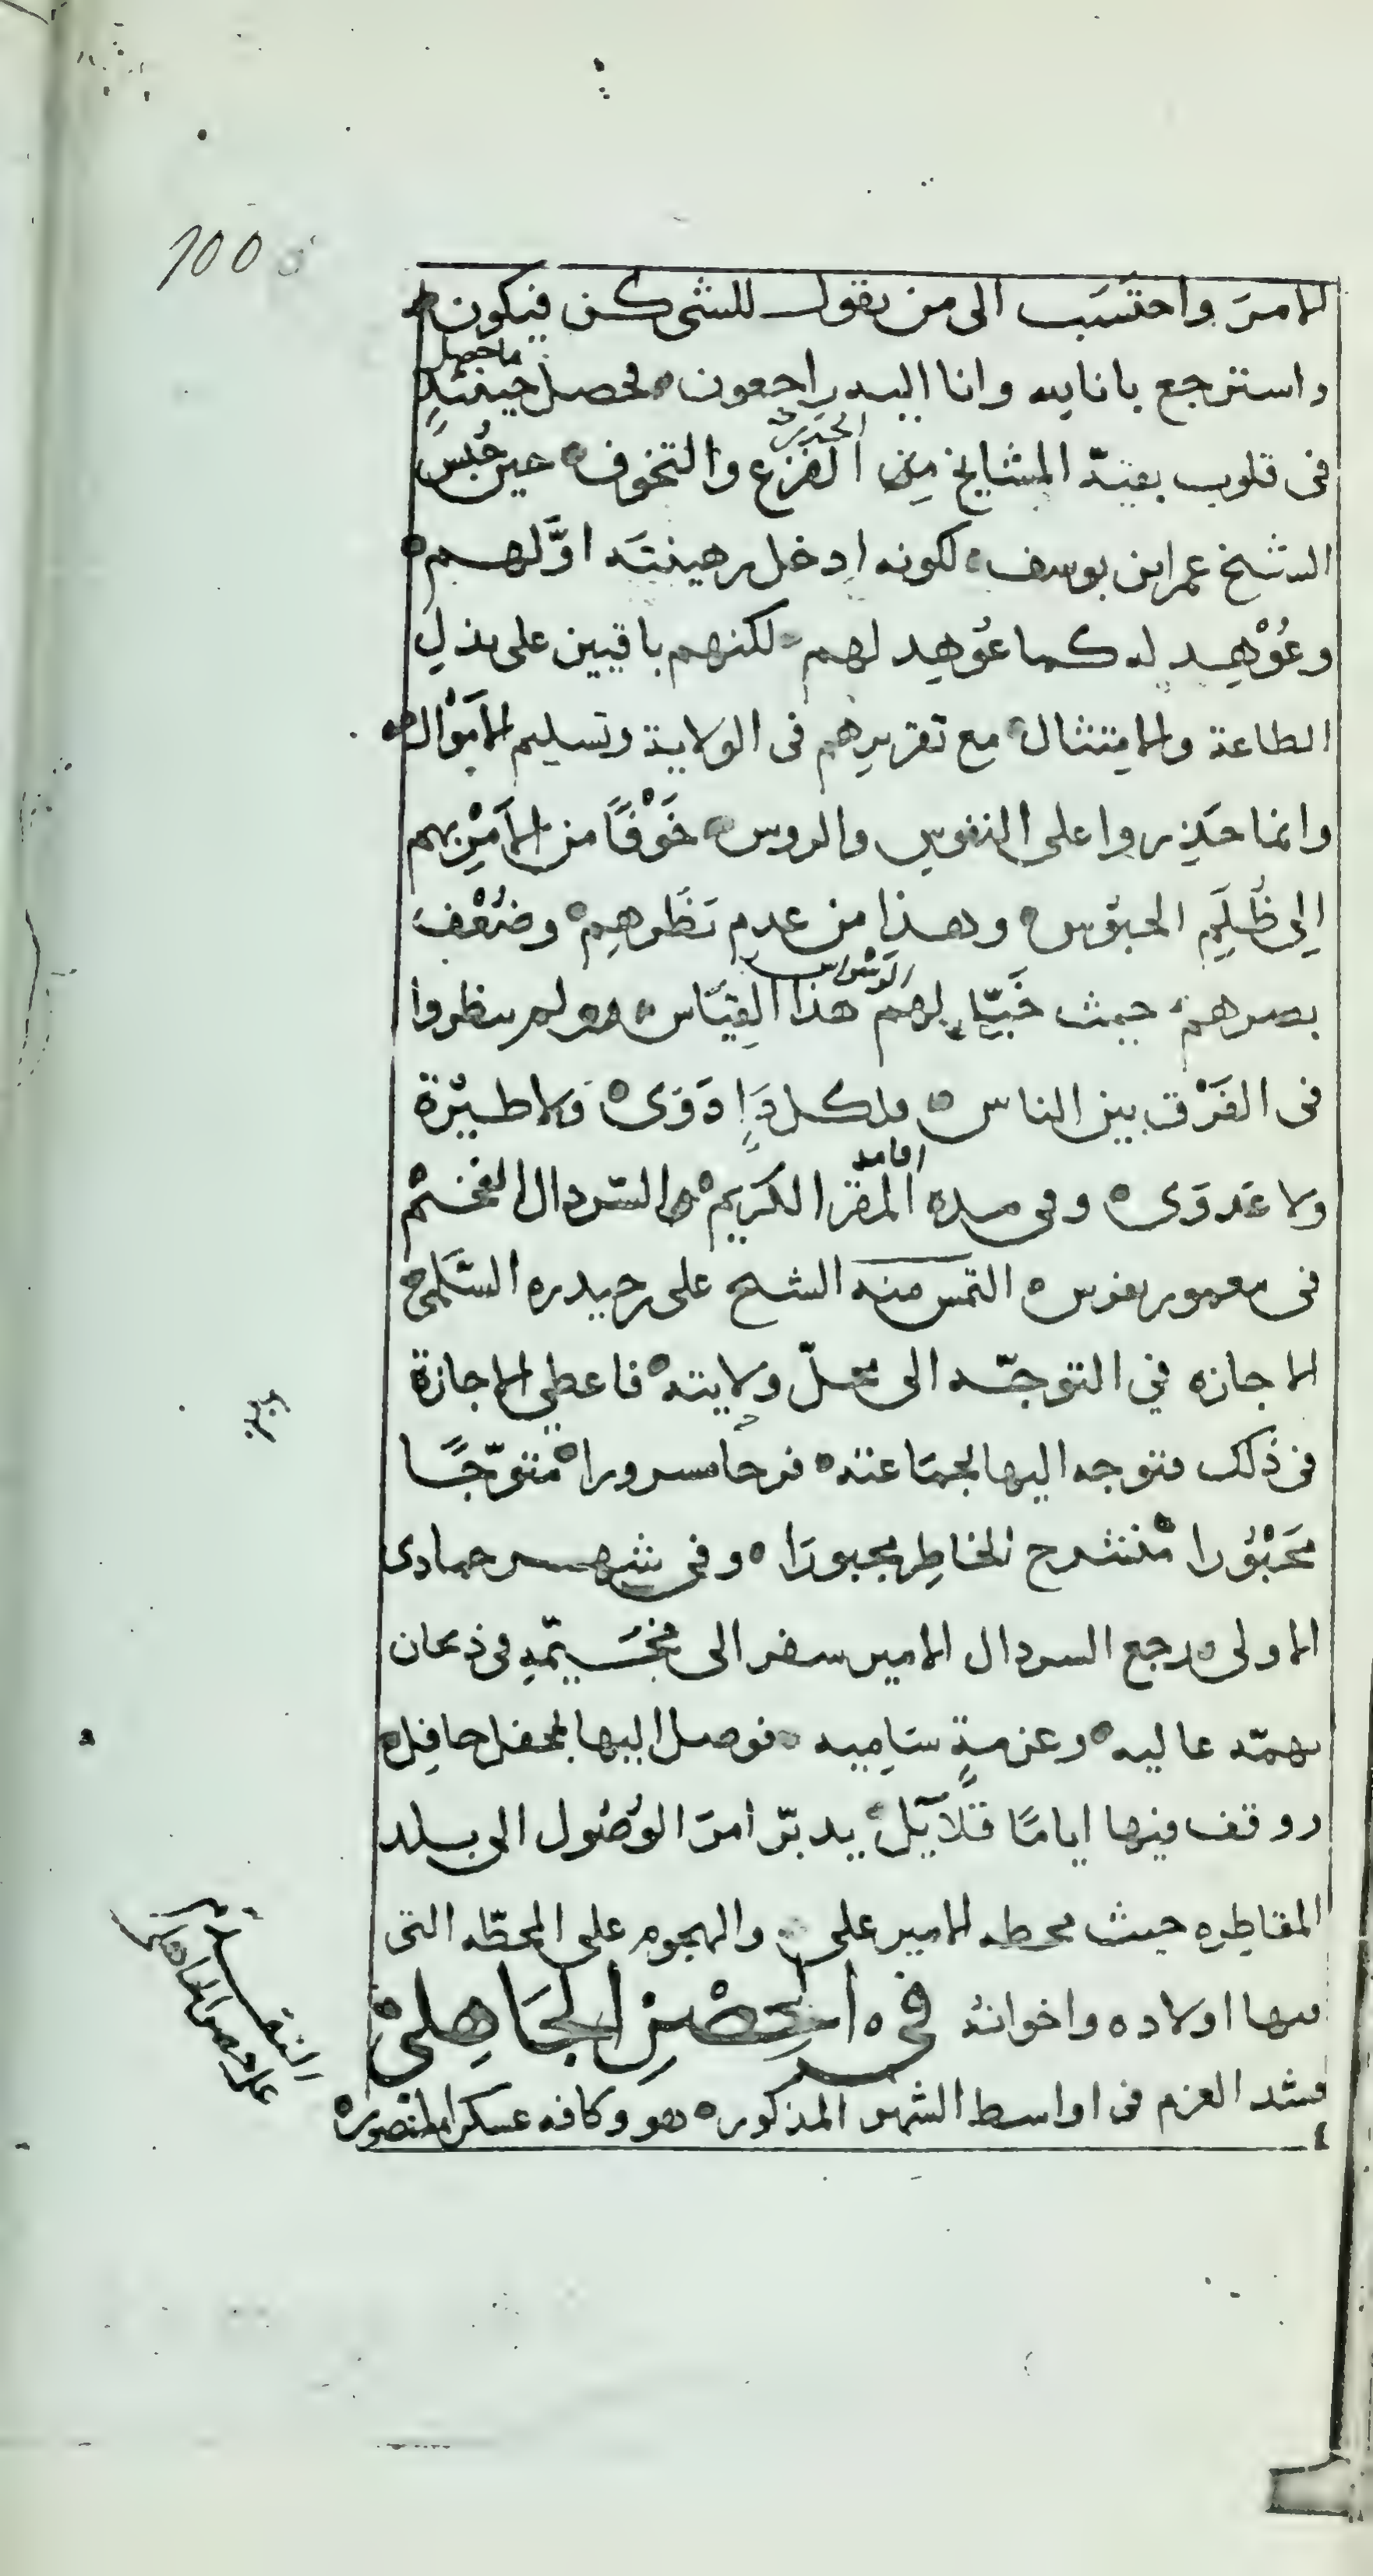 100
الامرَ واحتَسَب الى من يقول للشى كن فيكون
واسترجع بانا لله وانا اليه راجعون فحصل حينئذٍ ما حصل
فى قلوب بقيّة المشايخ مِن الفزع والتخوف حين حُبسَ
الشيخ عمر ابن يوسف لكونه ادخل رهينتَه اوّلهم
وعُوْهِد له كما عُوهِد لهم لكنهم باقيين على بذلِ
الطاعة والامِتثال مع تقريرِهم فى الولاية وتسليم الامَوْال
وانما حَذِروا على النفوس والروس خَوْفًا من الامَيْرِ بهم
اِلى ظُلَمِ الحبوس وهذا من عدم نَظرهِمْ وضُعْفَ
بصرهم حيث خَيَّل لهم الوسَوْاس هذا القِيَاس ولم ينظروا
فى الفَرْق بين الناس ولكل دَاٍ دَوَى وَلا طيْرة
ولا عَدوَى وفى مده اقامه المقر الكريم السّردال المفخم
فى معمور يفرس التمس منه الشيخ على حيدره السَّلمى
الاجازه في التوجّه الى محلّ ولايته فاعطي الاجازة
فى ذلك فتوجه اليها بجماعته فرحا مسرورا مْتوّجًا
مَحَبْوُرا مْنشرح الخاطِر مجبورَا وفى شهر جمادى
الاولى رجع السردال الامير سفر الى مخيّمهِ فى ذبحان
بهمّه عاليه وعزمةٍ سَاِميه فوصل اليها بمحفل حافِل
ووقف فيها ايامًا قلآئل يدبّر امرَ الوُصُول الى بلد
المقاطِره حيث محطه الامير على والهجوم على المحطّه التى
فيها اولاده واخوانهُ فى الحِصْنِ الجَاهِلىْ
فشد العزم فى اواسط الشهر المذكور هو وكافه عسكر المنصوره